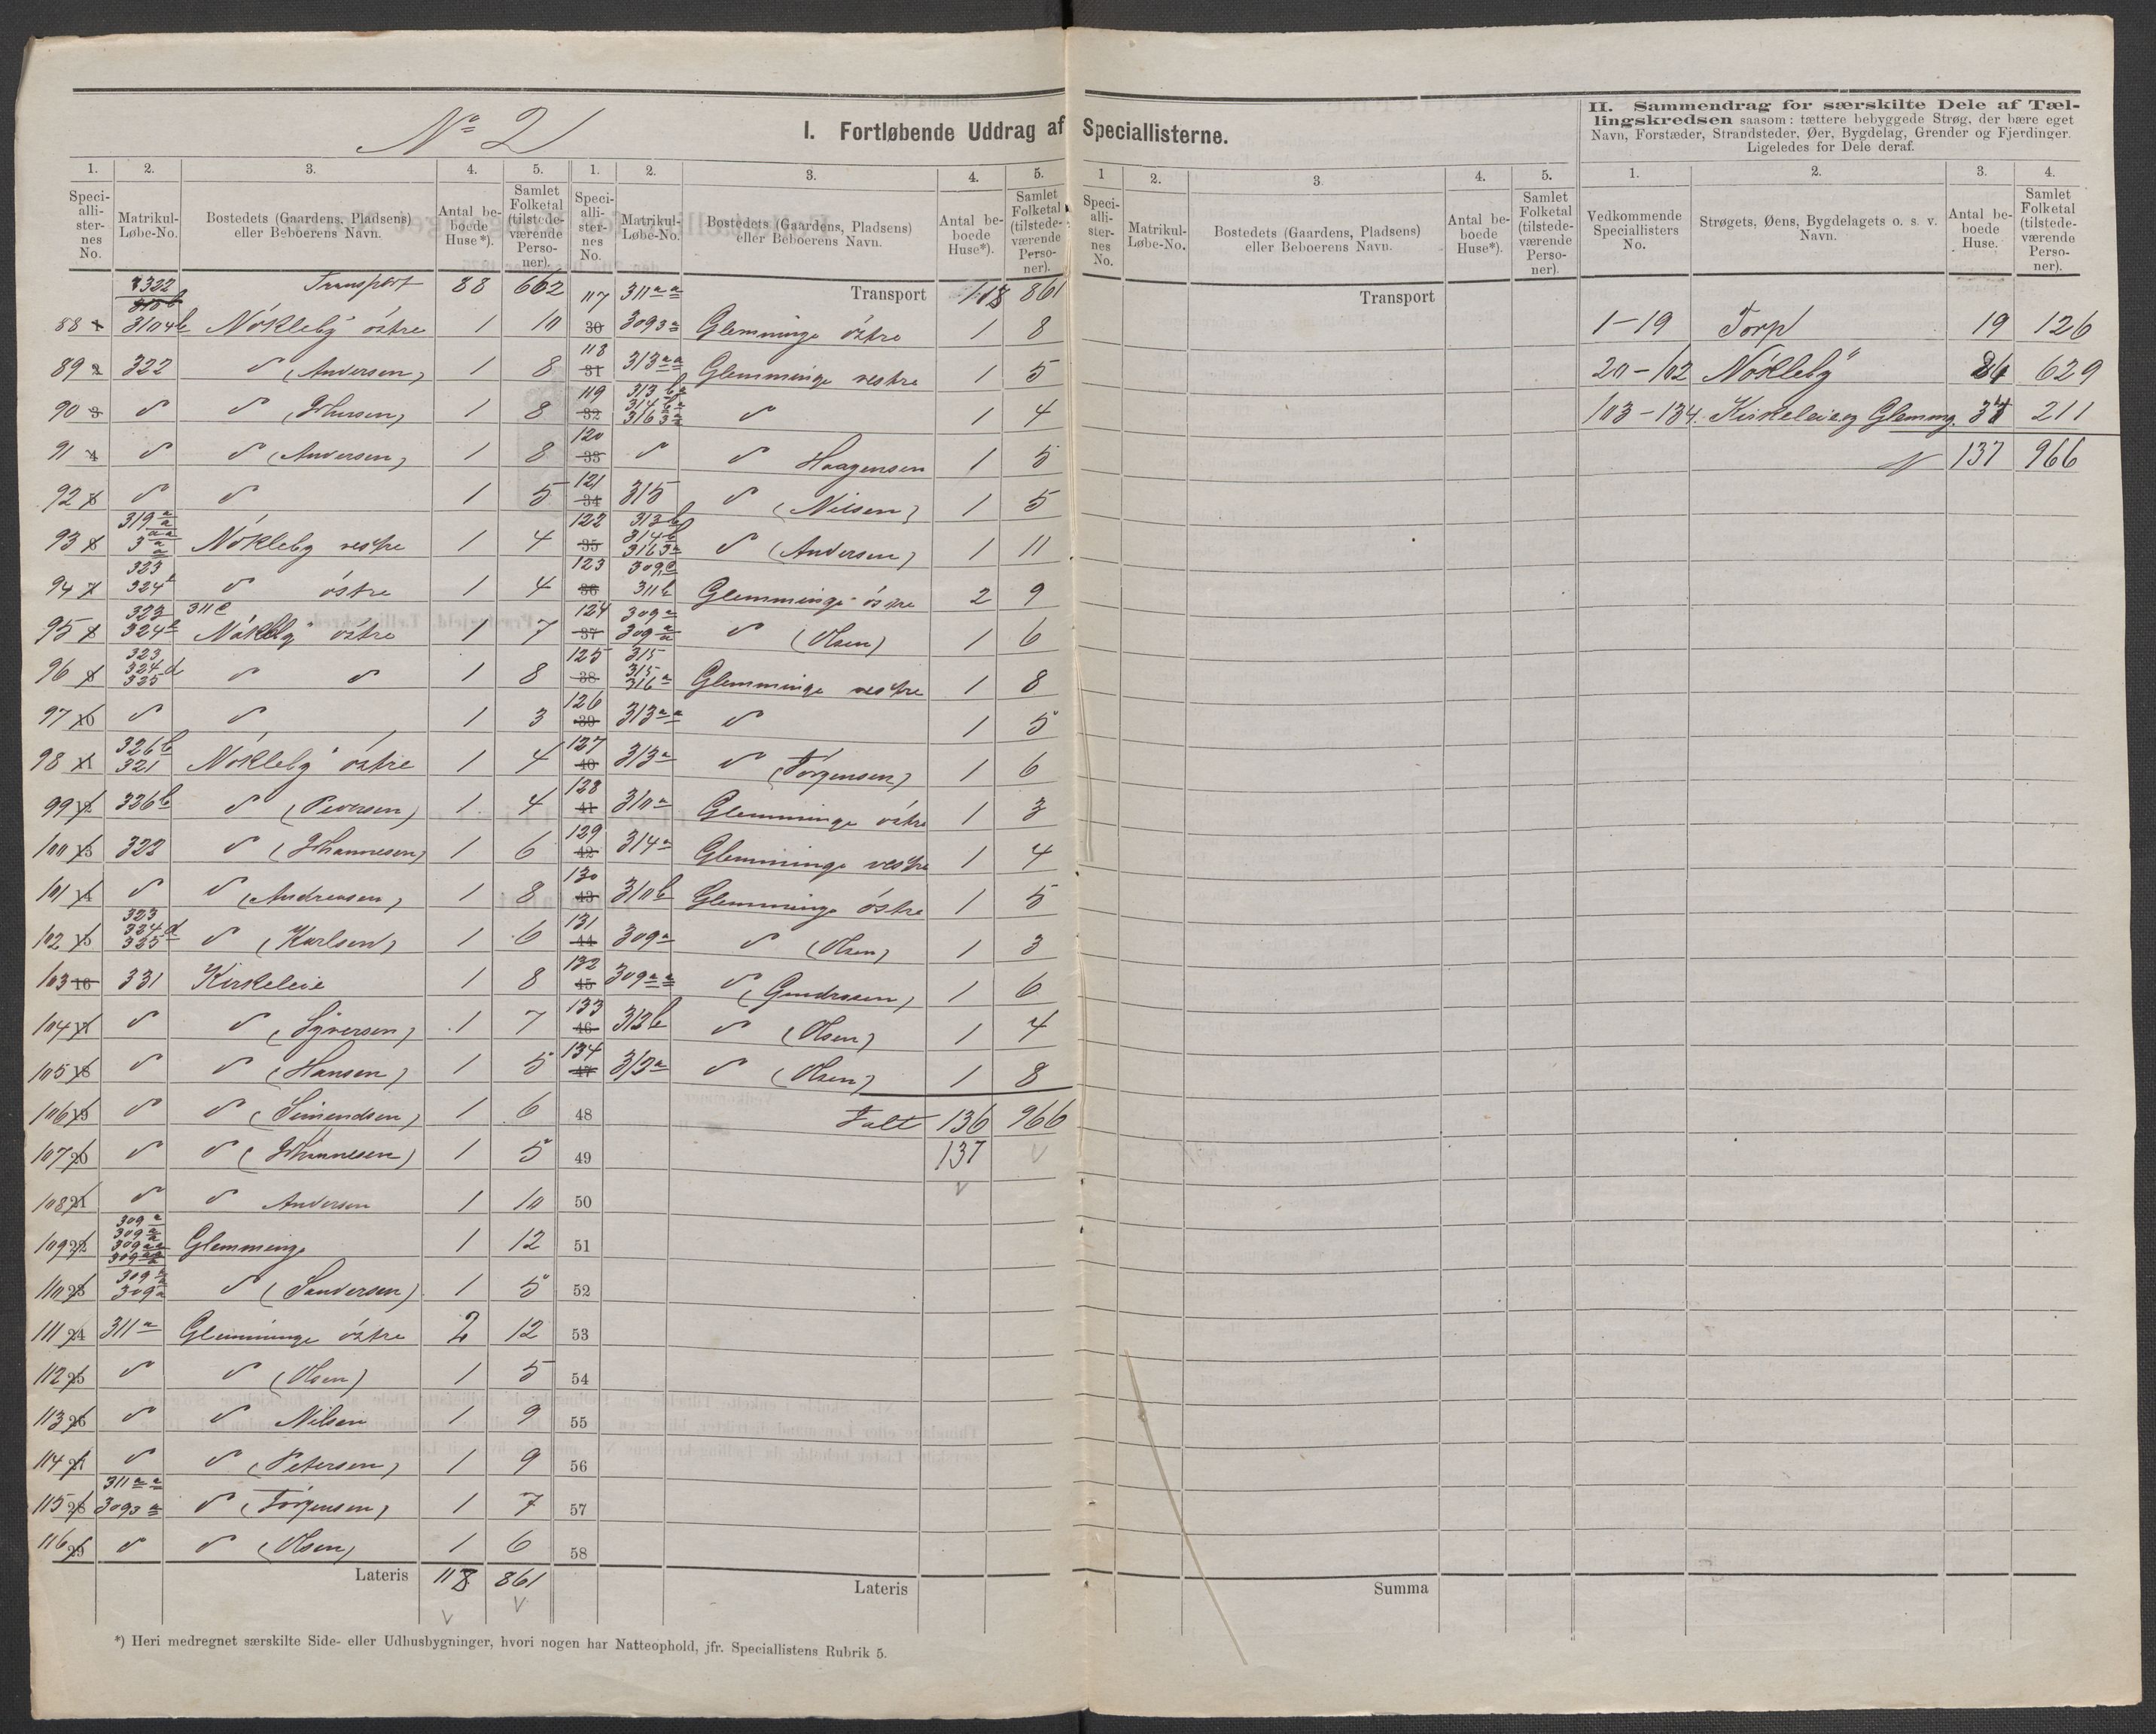 No 2
I. Fortløbende Uddrag af Speciallisterne.
II. Sammendrag for særskilte Dele af Tæl-
lingskredsen saasom: tættere bebyggede Strøg, der bære eget
Navn, Forstæder, Strandsteder, Øer, Bygdelag, Grender og Fjerdinger.
Ligeledes for Dele deraf.
1. 2. 3. 4. 5. 1. 2. 3. 4. 5.
Speci-alli-ster-nes No. Matrikul-Løbe-No. Bostedets (Gaardens, Pladsens) eller Beboerens Navn. Antal be-boede Huse*). Samlet Folketal (tilstede-værende Perso-ner).
Speci-alli-ster-nes No. Matrikul-Løbe-No. Bostedets (Gaardens, Pladsens) eller Beboerens Navn. Antal be-boede Huse*). Samlet Folketal (tilstede-værende Perso-ner).
322 Transport 88 662
88 310 4 b Nökleby östre 1 10
89 322 " (Andersen) 1 8
90 " " 1 8
91 " " (Andersen) 1 8
92 " " 1 5
93 319 a Nökleby vestre 1 4
94 323 324 " östre 1 4
95 323 324 311e Nökleby östre 1 7
96 323 324 d 325 " " 1 8
97 " " 1 3
98 326 b 321 Nökleby östre 1 4
99 326 b " (Pedersen) 1 4
100 322 " (Johannesen) 1 6
101 " " (Andreasen) 1 8
102 323 324 d 325 " (Karlsen) 1 6
103 331 Kirkeleie 1 8
104 " " (Syversen) 1 7
105 " " (Hansen) 1 5
106 " " (Simensen) 1 6
107 " " (Johannesen) 1 5
108 " " Andersen 1 10
109 309 a 309 a 309 aa 309 aa Glemminge 1 12
110 309 a 309 a " 1 5
111 311 a Glemminge östre 2 12
112 " " (Olsen) 1 5
113 " " Nilsen 1 9
114 " " (Petersen) 1 9
115 311 a a 309 3 a " (Jörgensen) 1 7
116 " " (Olsen) 1 6
Lateris 118 861
Transport 118 861
117 311 a a 309 3 a Glemminge östre 1 8
118 313 a a Glemminge vestre 1 5
119 313 b 314 b 316 3 a " 1 4
120 " " Haagensen 1 5
121 315 " (Nilsen) 1 5
122 313 b 314 b 316 3 a " (Andersen) 1 11
123 309 c 311 b Glemminge östre 2 9
124 309 a 309 a " (Olsen) 1 6
125 315 315 316 a Glemminge vestre 1 8
126 313 a a " 1 5
127 313 a " (Jörgensen) 1 6
128 310 a Glemminge östre 1 3
129 314 a Glemminge vestre 1 4
130 310 b Glemminge östre 1 5
131 309 a " (Olsen) 1 3
132 309 a a " (Gundersen) 1 6
133 313 b " (Olsen) 1 4
134 313 a " (Olsen) 1 8
48 Ialt 136 966
49 137
50
51
52
53
54
55
56
57
58
Lateris
1 2. 3. 4. 5.
Speci-alli-ster-nes No. Matrikul-Løbe-No. Bostedets (Gaardens, Pladsens) eller Beboerens Navn. Antal be-boede Huse*). Samlet Folketal (tilstede-værende Perso-ner).
Transport
Summa
1. 2. 3. 4.
Vedkommende Speciallisters No. Strøgets, Øens, Bygdelagets o. s. v. Navn. Antal be-boede Huse. Samlet Folketal (tilstede-værende Perso-ner).
1-19 Torp 19 126
20-102 Nökleby 84 629
103-134 Kirkeleie og Glemming. 34 211
137 966
*) Heri medregnet særskilte Side- eller Udhusbygninger, hvori nogen har Natteophold, jfr. Speciallistens Rubrik 5.